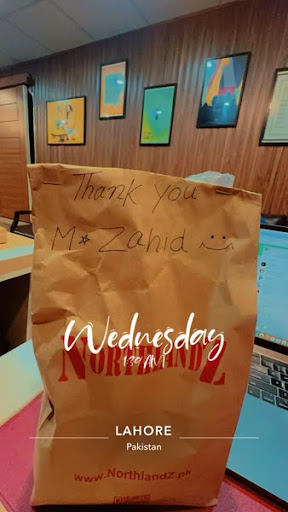 - Thank you -
M*Zahid :)
Wednesday
1:39 AM
NORTHLANDZ
LAHORE
Pakistan
www.Northlandz.pk